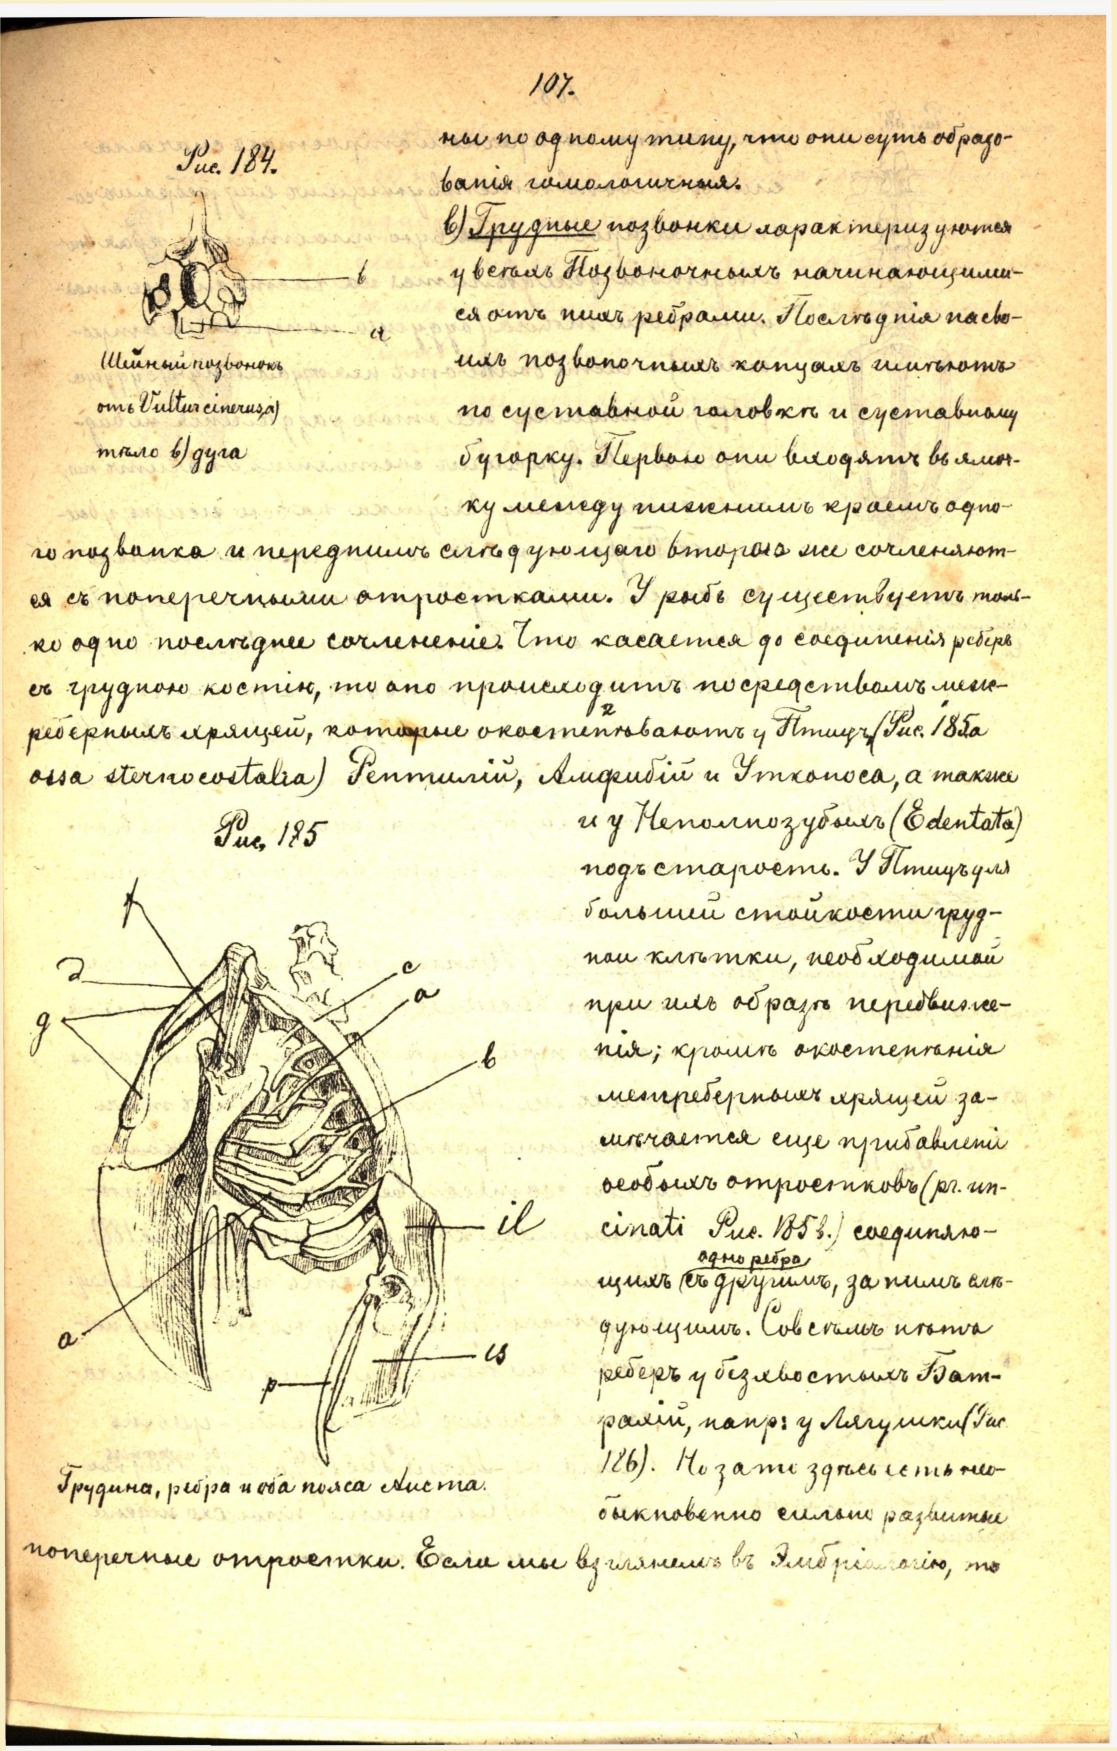 107.
Рис. 184.
в
а
Шейный позвонокъ
отъ Vultur cinerus, а)
тѣло в) дуга
ны по одному типу, что они суть образо-
ванія гомологичныя.
в) Грудные позвонки характеризуются
у всѣхъ Позвоночныхъ начинающими-
ся отъ нихъ ребрами. Послѣднія на сво-
ихъ позвоночныхъ концахъ имѣютъ
по суставной головкѣ и суставному
бугорку. Первою они входятъ въ ямоч-
ку между нижнимъ краемъ одно-
го позвонка и переднимъ слѣдующаго второго же сочленяют-
ся съ поперечными отростками. У рыбъ существуетъ толь-
ко одно послѣднее сочлененіе. Что касается до соединенія реберъ
съ грудною костію, то оно происходитъ посредствомъ меж-
реберныхъ хрящей, которые окостенѣваютъ у Птицъ (Рис. 185а
ossa sternocostalia) Рептилій, Амфибій и Утконоса, а также
и у Неполнозубыхъ (Edentata)
подъ старость. У Птицъ для
большей стойкости груд-
ной клѣтки, необходимой
при ихъ образѣ передвиже-
нія; кромѣ окостенѣнія
межреберныхъ хрящей за-
мѣчается еще прибавленіе
особыхъ отростковъ (pr. un-
cinati Рис. 185 в.) соединяю-
одно ребро
щихъ съ другимъ, за нимъ слѣ-
дующимъ. Совсѣмъ нѣтъ
реберъ у безхвостыхъ Бат-
рахій, напр: у Лягушки (Рис
186). Но зато здѣсь есть нео-
быкновенно сильно развитые
поперечные отростки. Если мы взглянемъ въ Эмбріологію, то
Рис. 185
f
д
g
с
а
в
il
а
is
p
Грудина, ребра и оба пояса Аиста.